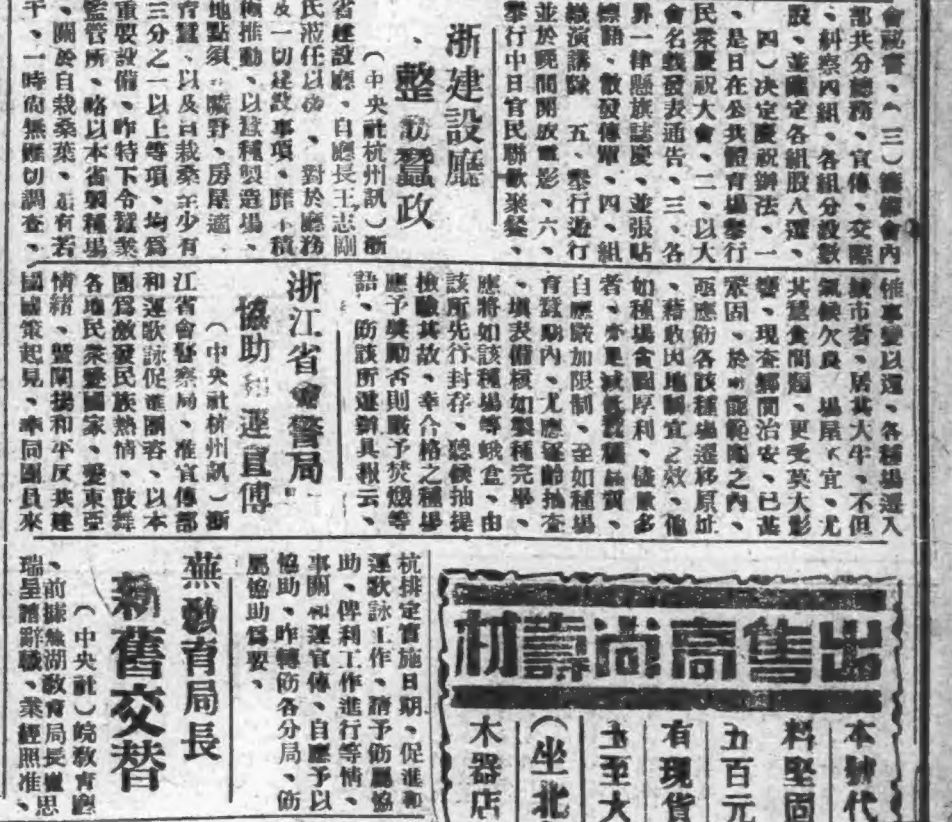 會祕書、(三)籌備會內
部共分總務、宣傳、交際
、糾察四組、各組分設數
股、並鑑定各組股人選、
四)決定慶祝辦法、一
、是日在公共體育場舉行
民衆慶祝大會、二、以大
會名義發表通告、三、各
界一律懸旗誌慶、並張貼
標語、散發傳單、四、組
織演講隊 五、舉行遊行
並於晚間開放電影、六、
舉行中日官民聯歡聚餐、
浙建設廳
、整飭蠶政
(中央社杭州訊)浙
省建設廳、自廳長王志剛
氏蒞任以後、對於廳務
及一切建設事項、靡不積
極推動、以蠶種製造場、
地點須 曠野、房屋適
育蠶、以及自栽桑至少有
三分之一以上等項、均爲
重要設備、昨特下令蠶業
監管所、略以本省製種場
、關於自栽桑葉、止有若
干、一時尙無確切調查、
惟事變以還、各種場遷入
城市者、居其大半、不但
氣候欠良 場屋不宜、尤
其蠶食問題、更受莫大影
響、現查鄉間治安、已甚
鞏固、於可能範圍之內、
亟應飭各該種場遷移原址
、藉收因地制宜之效、他
如種場貪圖厚利、儘量多
者、亦足減低蠶種品質、
自應嚴加限制、至如種場
育蠶期內、尤應逐齡抽查
、填表備核如製種完畢、
應將如該種場等蛾盒、由
該所先行封存、聽候抽提
檢驗其故、幸合格之種場
應予獎勵否則嚴予焚燬等
語、飭該所遵辦具報云、
浙江省會警局
協助和運宣傳
(中央社杭州訊)浙
江省會警察局、准宣傳部
和運歌詠促進團咨、以本
團爲激發民族熱情、鼓舞
各地民衆愛國家、愛東亞
情緒、暨闡揚和平反共建
國國策起見、率同團員來
杭排定實施日期、促進和
運歌詠工作、請予飭屬協
助、俾利工作進行等情、
事關和運宣傳、自應予以
協助、昨轉飭各分局、飭
屬協助爲要、
蕪教育局長
新舊交替
(中央社)皖教育廳
、前據蕪湖教育局長 思
瑞呈請辭職、業經照准、
出售高尚壽材
本號代
料堅固
五百元
有現貨
土至大
(坐北
木器店